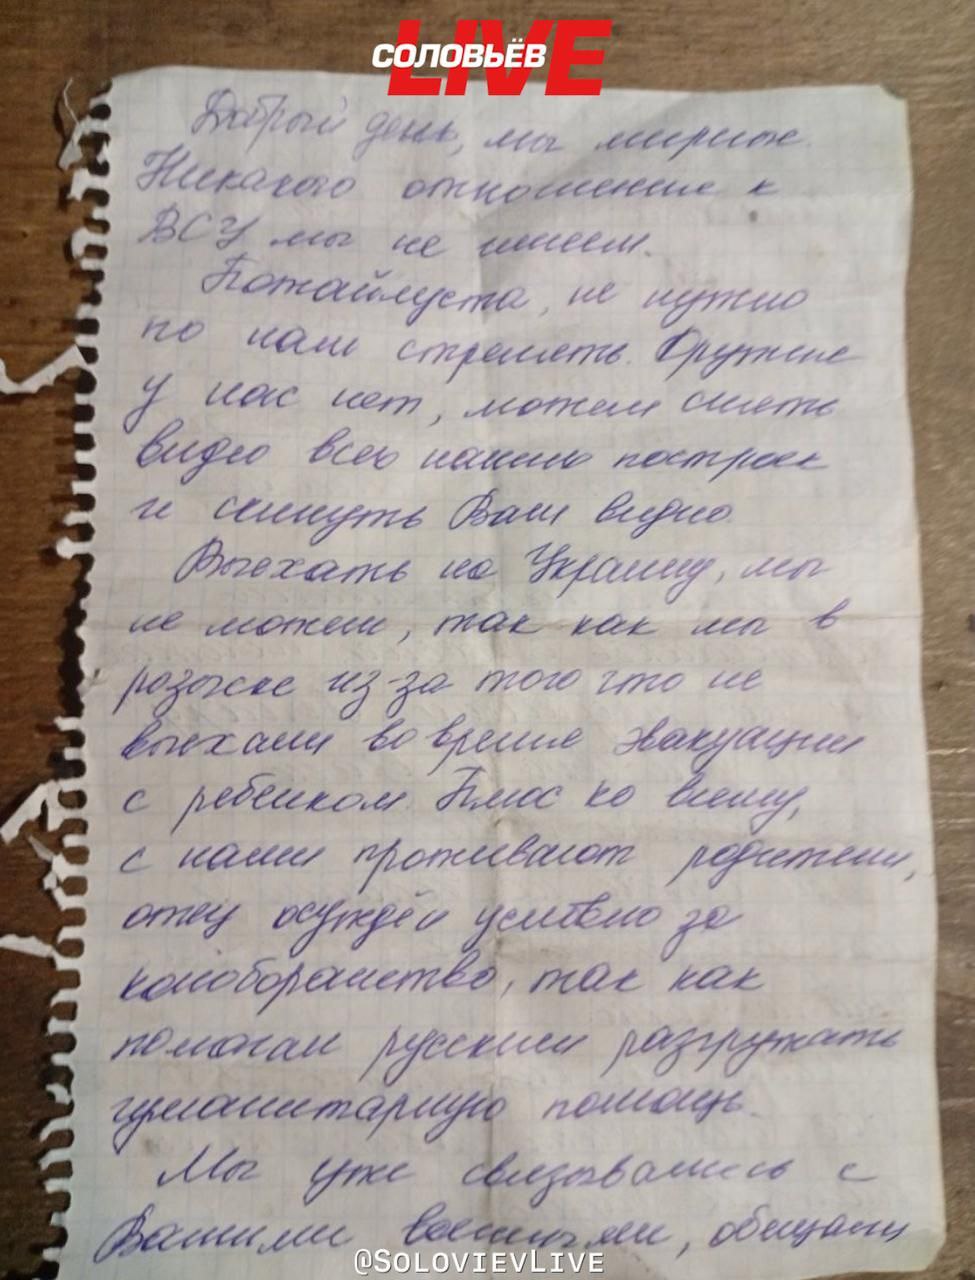 СОЛОВЬЁВ LIVE
Добрый день, мы мирные.
Никакого отношение к
ВСУ мы не имеем.
Пожайлуста, не нужно
по нам стрелять. Оружие
у нас нет, можем снять
видео всею нашию построек
и скинуть Вам видио.
Выехать на Украину, мы
не можем, так как мы в
розыске из-за того что не
выехали во время эвакуации
с ребенком. Плюс ко всему,
с нами проживают родители,
отец осуждён условно за
колоборанство, так как
помогал русским разгружать
гуманитарную помощь.
Мы уже связывались с
Вашими военными, обещали
@SOLOVIEVLIVE